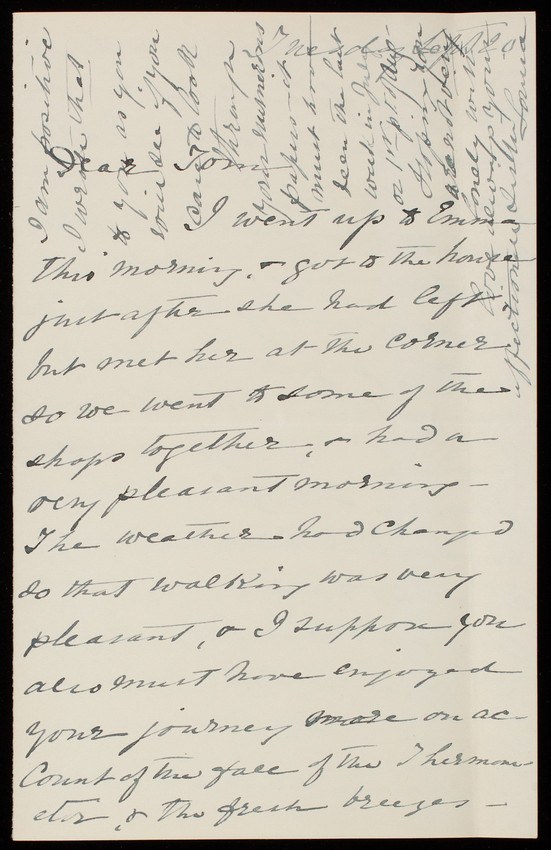 Tuesday Sept 20
Dear Tom
I went up to Emma
this morning, & got to the house
just after she had left
but met her at the corner
so we went to some of the
shops together, & had a
very pleasant morning -
The weather had changed
so that walking was very
pleasant, & I suppose you
also must have enjoyed
your journey more on ac-
count of the fall of the Thermom-
eter, & the fresh breezes -
I am positive
I wrote that
to you as you
will see if you
care to look
through
your
papers - it
must have
been the last
week in July
or 1st of Aug
Hoping you
are not very
lonely with
love always your
affectionate sister